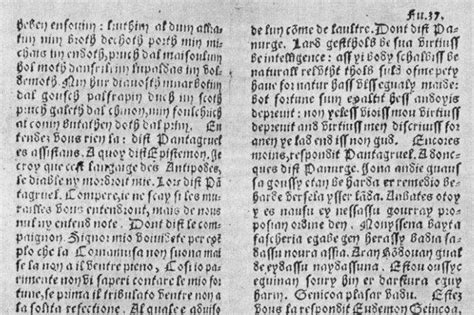 heben ensouim : kuthim al dum alka
tim nin broth dechoth porth min mi
chais im endoth, pruch dal maisoulun
hol moth danfrihim lupaldas im vol
demoth. Nin hur diauosth mnarbotim
dal gousch palfrapin duch im scoth
pruch galeth dal chinon, min foulchich
al conin butathen doth dal prim. En
tendez vous rien la : dist Pantagruel
es assistans. A quoy dist Epistemon, Je
croy que cest langaige des Antipodes,
le diable ny mordroit mie. Lors dist Pã
tagruel. Compere, ie ne scay si les murailles
vous entendront, mais de nous
nul ny entend note. Dont dist le com
paignon. Signor mio voi videte per exem
plo che la Cornamusa non suona mai
se la non a il ventre pieno, Cosi io pari
mente non vi saperi contare le mie for
tune, se prima il tribulato ventre non a
la solita refectione. Al quale e adviso
Fu.37.
de lun cõme de laultre. Dont dist Pa
nurge. Lard gest tholb be sua virtiuss
be intelligence : ass yi body schal biss be
naturall relvtht tholb suld of me pety
have for natur hass ulss egualy maide :
bot fortune sum exaltit hess andoyis
deprevit : non yeless vioiss mou virtiuss
deprevit and virtiuss men discriviss for
anen ye lad end iss non gud. Encores
moins, respondit Pantagruel. Adonc
ques dist Panurge. Jona andie guaus
sa goussy etay be harda er remedio be
harde versela ysser lada. Anbates otoy
y es nausu ey nessassu gourray pro
posian ordine den. Nonyssena bayta
fascheria egabe gen herassy badia sa
dassu noura assia. Aran Hõdouan gual
de eydassu naydassuna. Estou oussyc
eguinan soury hin er darstura eguy
harm. Genicoa plasar vadu. Estez
vous la respondit Eudemon Genicoa,